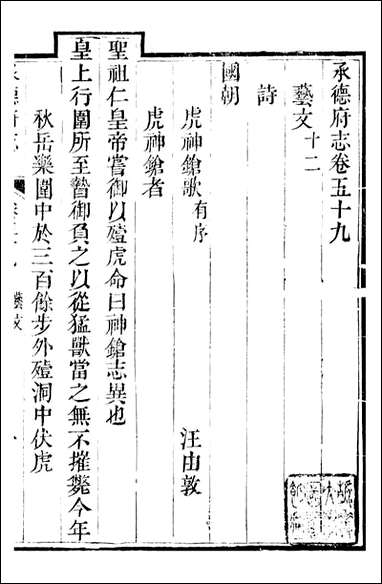 承德府志卷五十九
藝文十二
詩
國朝
虎神鎗歌有序 汪由敦
虎神鎗者
聖祖仁皇帝嘗御以殪虎命曰神鎗志異也
皇上行圍所至暬御負之以從猛獸當之無不摧斃今年
秋岳樂圍中於三百餘步外殪洞中伏虎
藝文